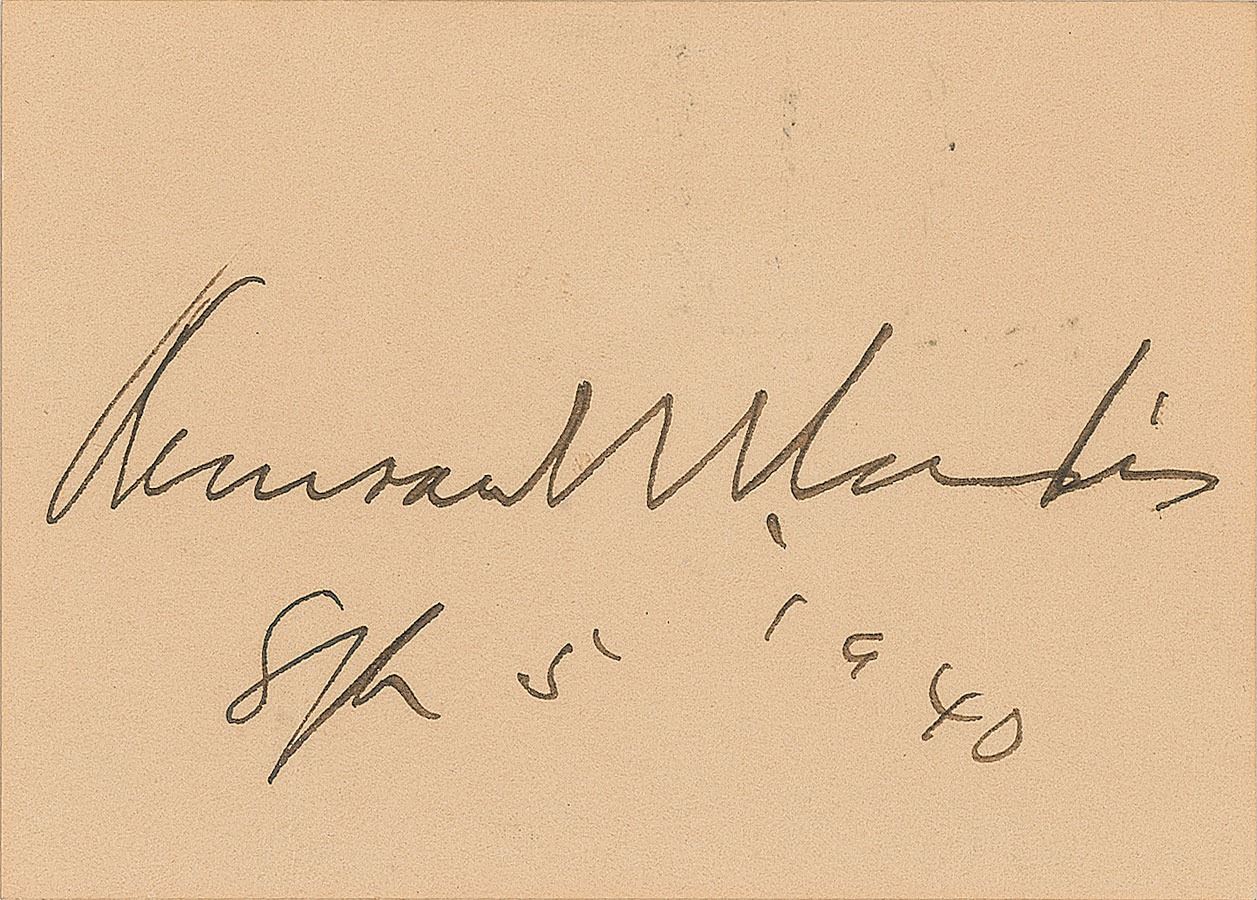 Kenesaw M. Landis
Sept 5 1940